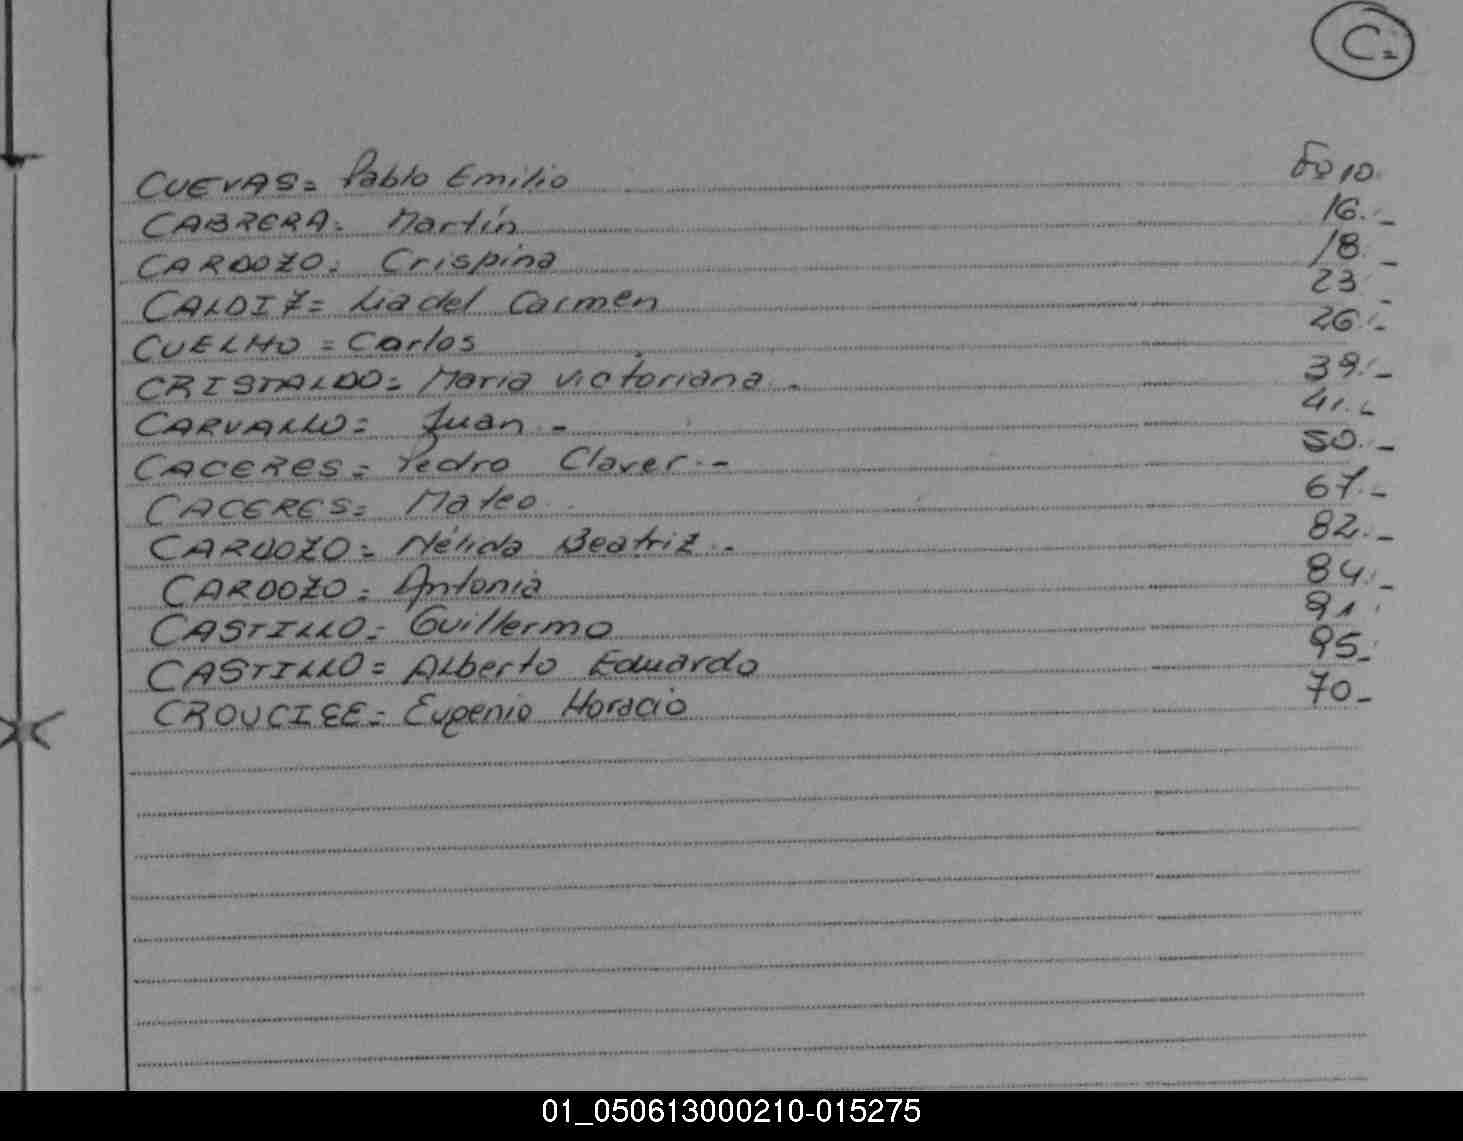 C=
CUEVAS= Pablo Emilio Fº 10.
CABRERA= Martín 16.-
CARDOZO= Crispina 18.-
CALDIZ= Lia del Carmen 23.-
CUELHO = Carlos 26.-
CRISTALDO= Maria Victoriana.- 39.-
CARVALLO= Juan.- 41.-
CACERES= Pedro Claver.- 50.-
CACERES= Mateo. 67.-
CARDOZO= Nélida Beatriz.- 82.-
CARDOZO= Antonia 84.-
CASTILLO= Guillermo 91.
CASTILLO= Alberto Eduardo 95.-
Eugenio Horacio 70.-
01_050613000210-015275